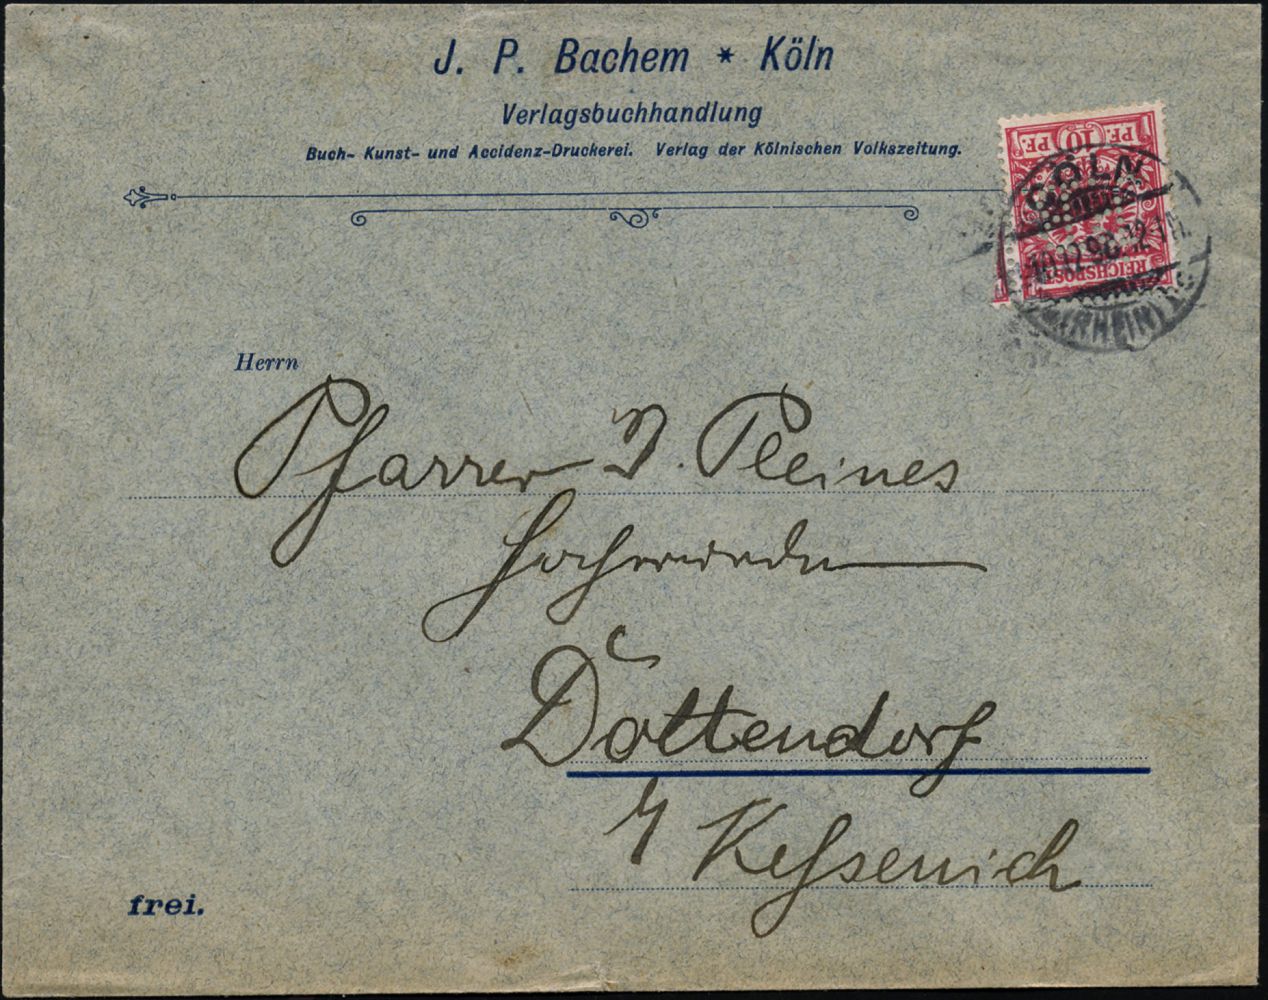 J. P. Bachem * Köln
Verlagsbuchhandlung
Buch- Kunst- und Accidenz-Druckerei. Verlag der Kölnischen Volkszeitung.
PF. 10 PF.
CÖLN
10.12.98.12-1N.
REICHSPOST
(RHEIN)
Herrn
Pfarrer J. Pleines
Hochwürden
Dottendorf
b/ Kessenich
frei.